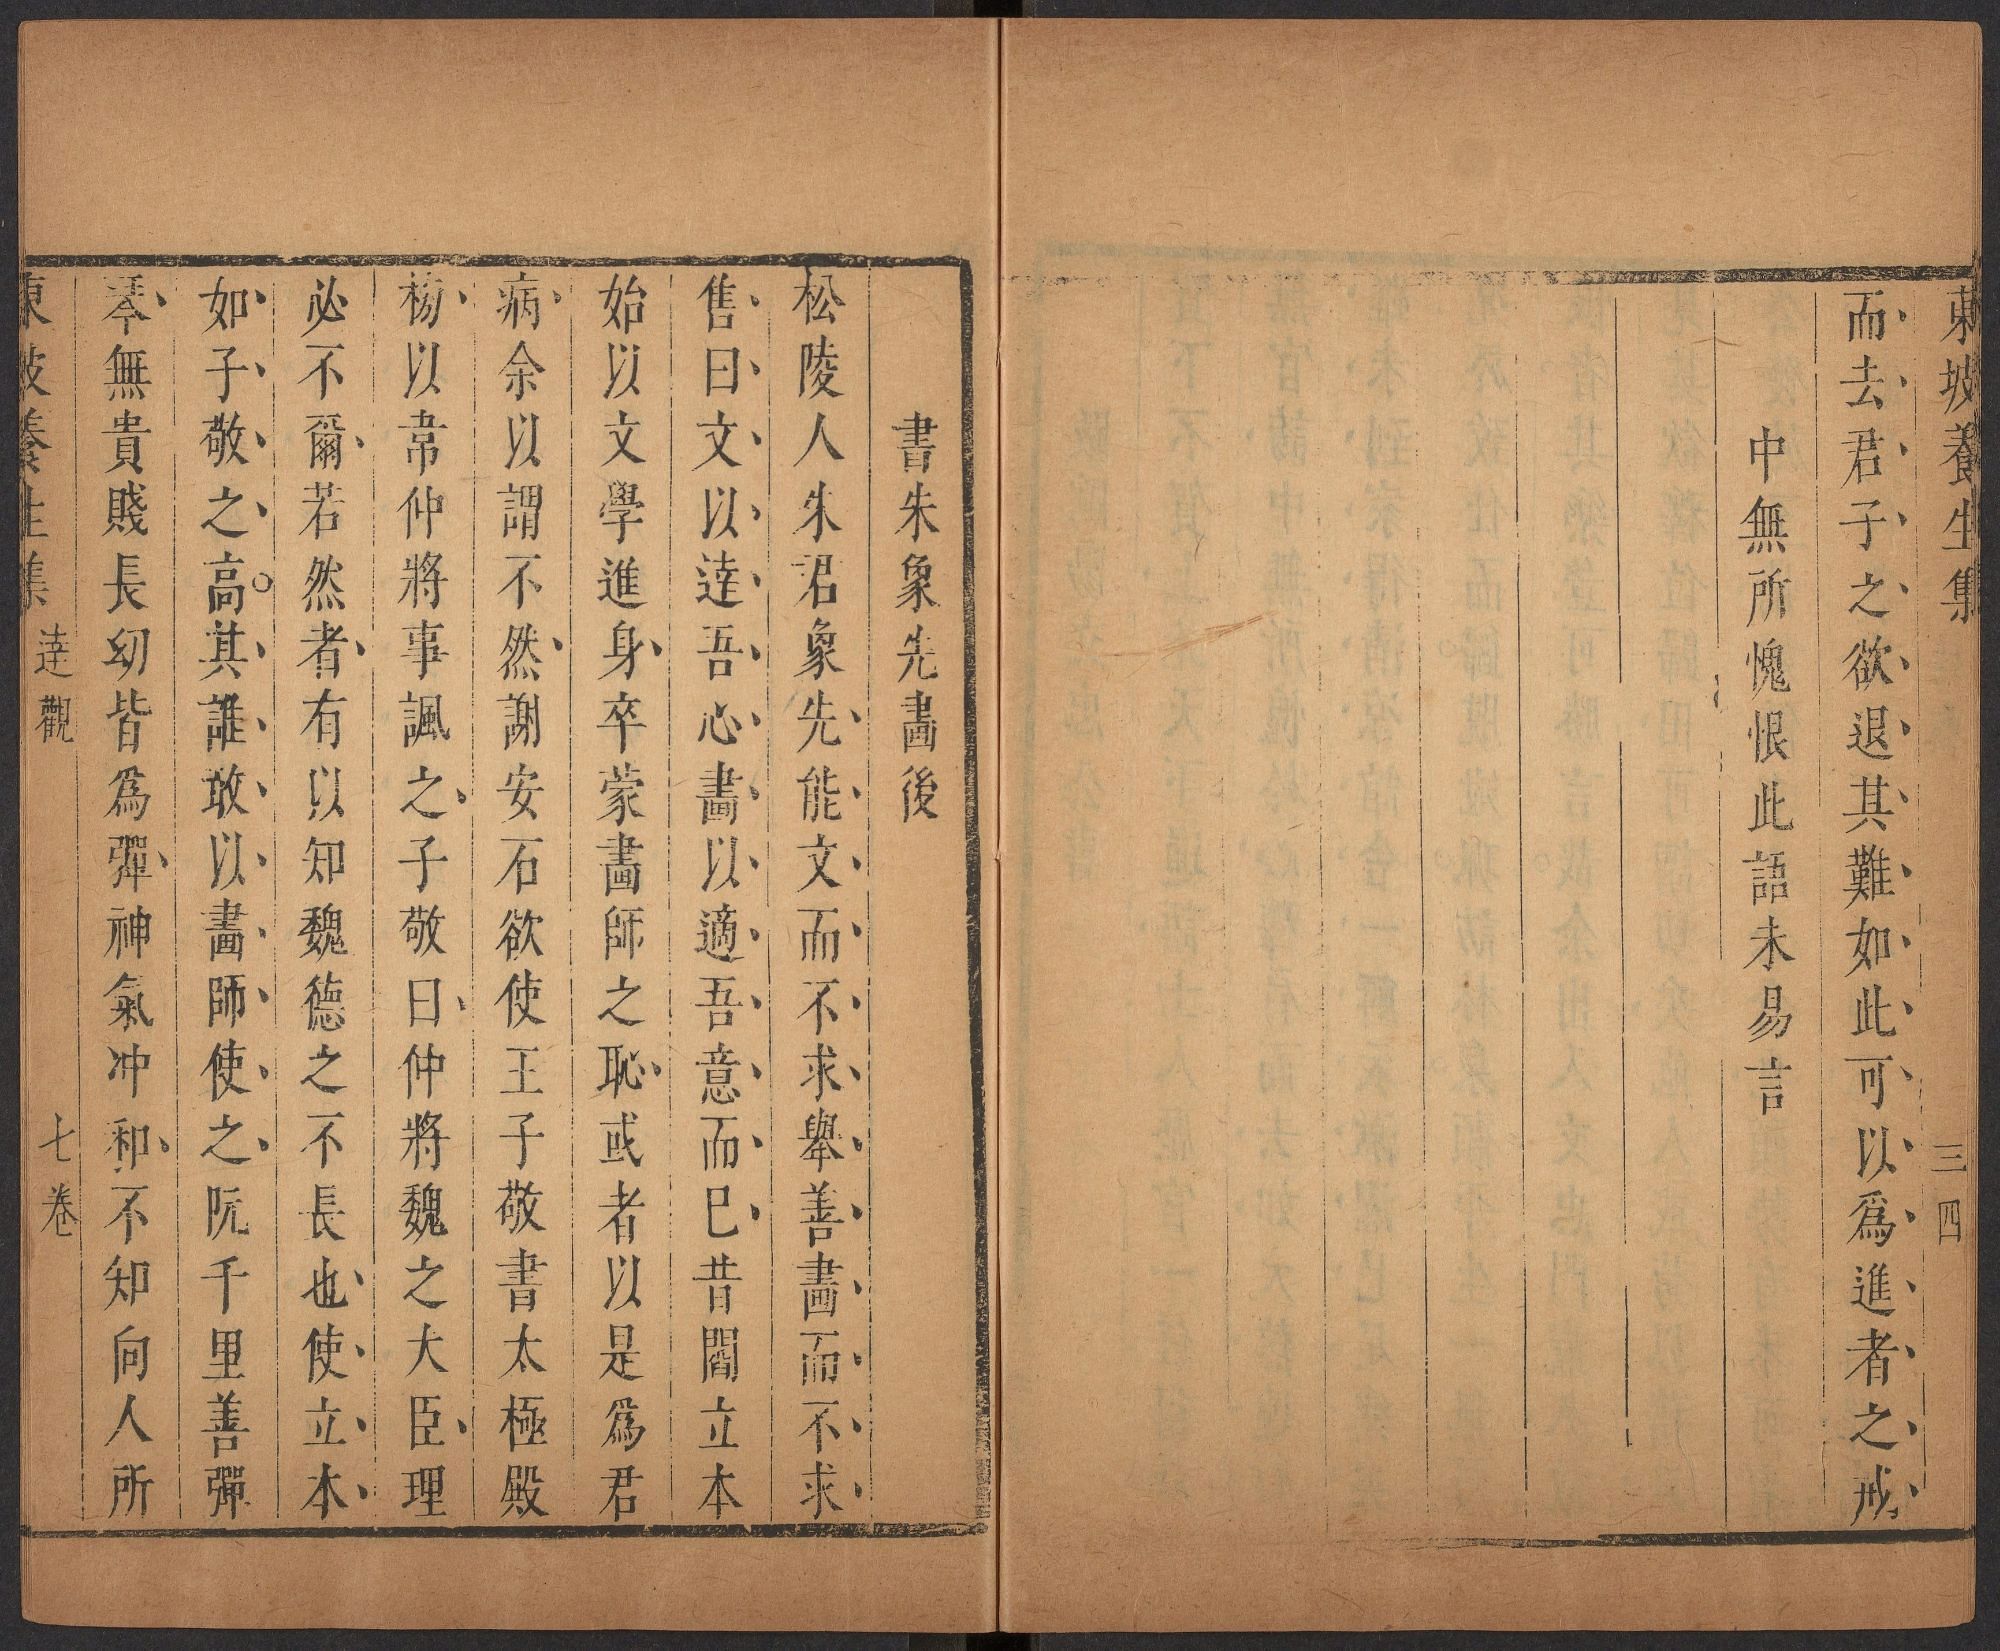 東坡養生集 三四
而去君子之欲退其難如此可以爲進者之戒
中無所愧恨此語未易言
書朱象先畵後
松陵人朱君象先能文而不求舉善畵而不求
售曰文以逹吾心畵以適吾意而已昔閻立本
始以文學進身卒蒙畵師之恥或者以是爲君
病余以謂不然謝安石欲使王子敬書太極殿
榜以韋仲將事諷之子敬曰仲將魏之大臣理
必不爾若然者有以知魏德之不長也使立本
如子敬之高其誰敢以畵師使之阮千里善彈
琴無貴賤長幼皆爲彈神氣冲和不知向人所
東坡養生集 逹觀 七卷